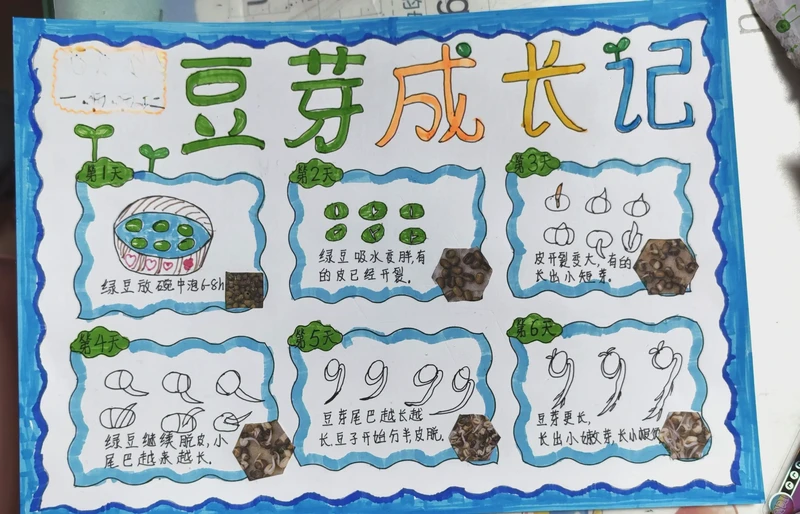 豆芽成长记
第1天
绿豆放碗中泡6-8h
第2天
绿豆吸水变胖,有
的皮已经开裂。
第3天
皮开裂变大,有的
长出小短芽。
第4天
绿豆继续脱皮,小
尾巴越来越长。
第5天
豆芽尾巴越长越
长,豆子开始分半皮脱。
第6天
豆芽更长,
长出小嫩芽,长小根